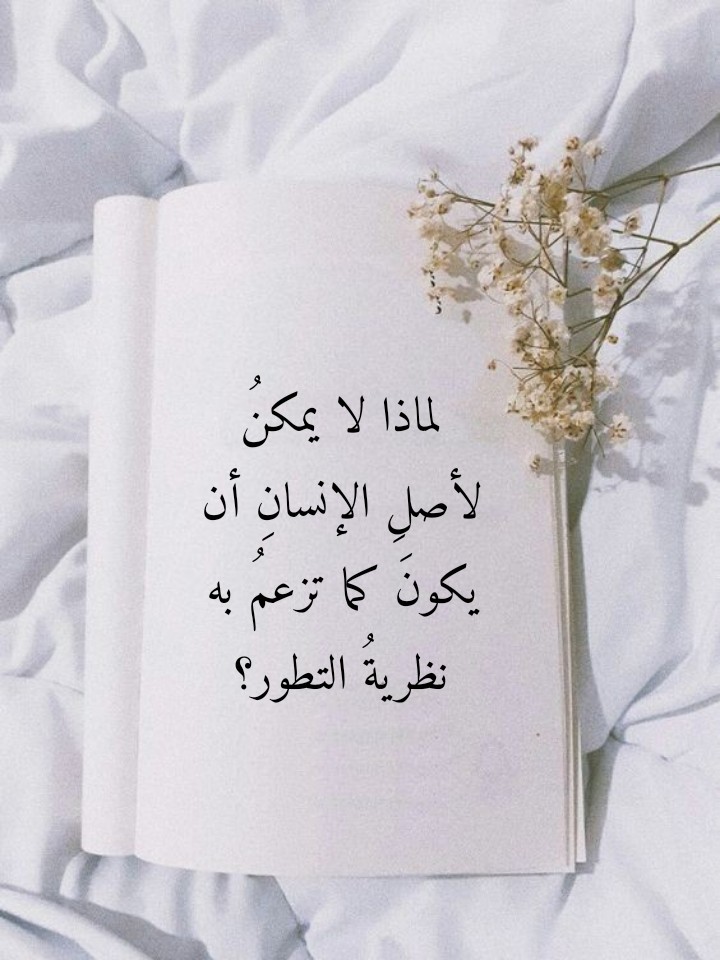 لماذا لا يمكنُ
لأصلِ الإنسانِ أن
يكونَ كما تزعمُ به
نظريةُ التطور؟